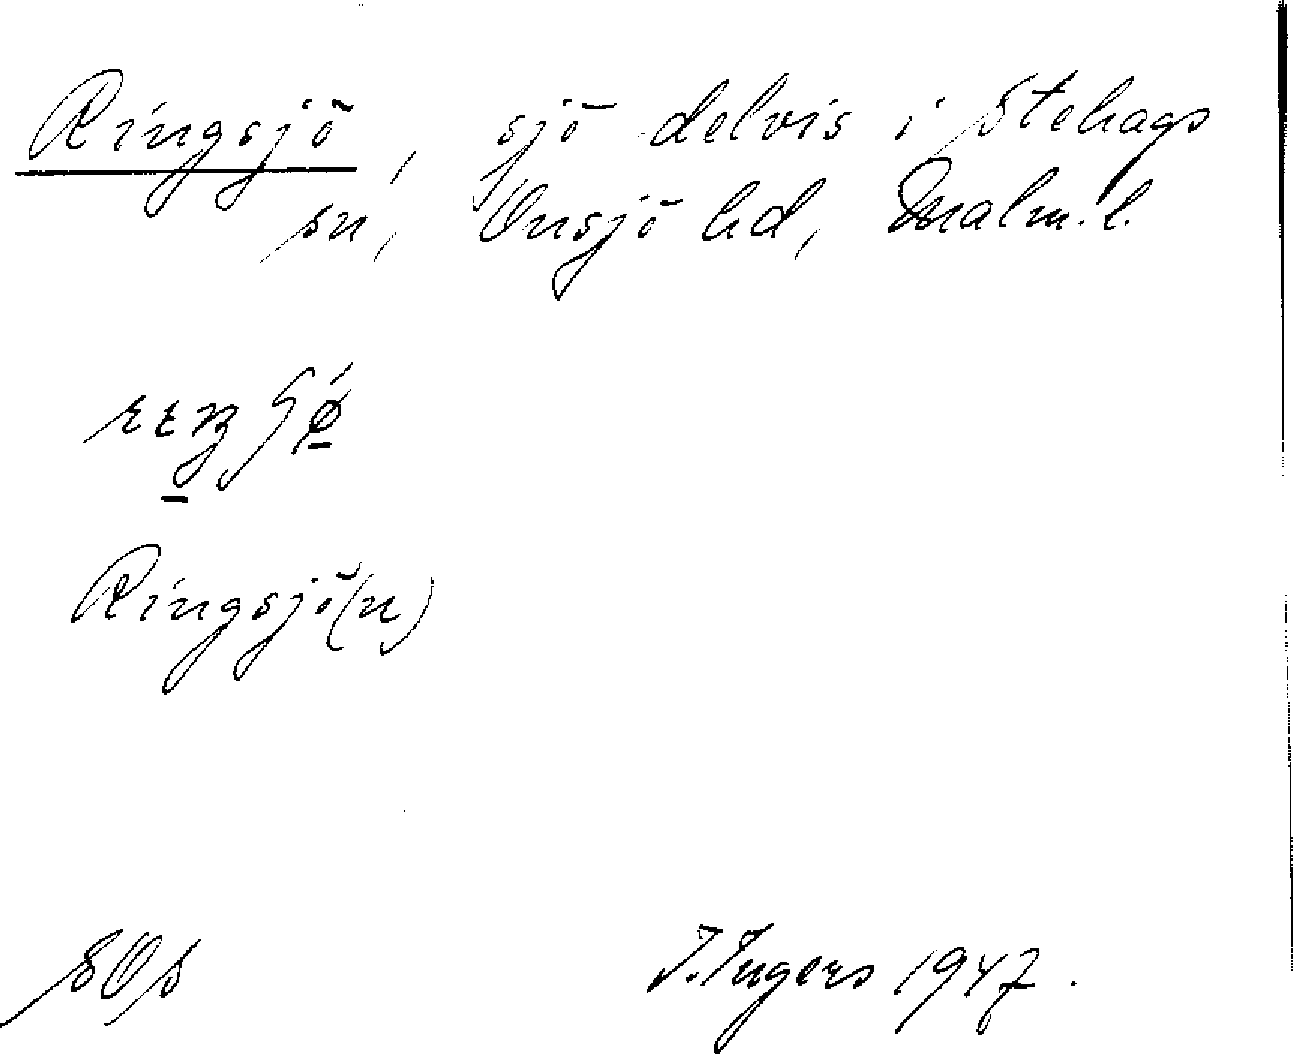 Ringsjö, sjö delvis i Stehags
sn, Onsjö hd, Malm. l.
Ringsjö(n)
SOS
I. Ingers 1947.